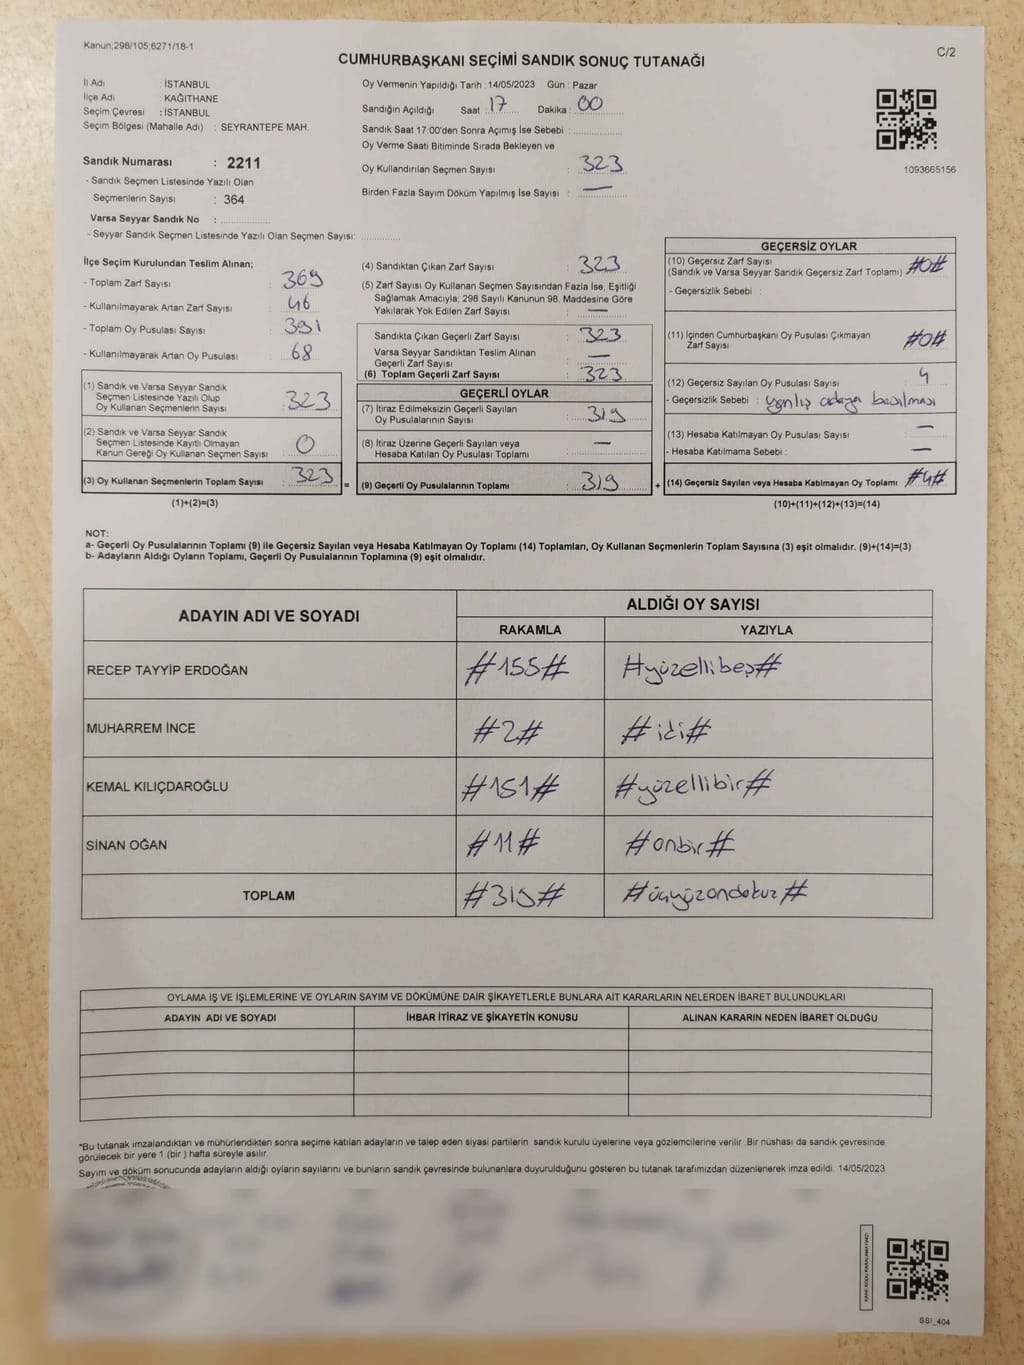 Kanun;298/105;6271/18-1
C/2
CUMHURBAŞKANI SEÇİMİ SANDIK SONUÇ TUTANAĞI
İl Adı : İSTANBUL
İlçe Adı : KAĞITHANE
Seçim Çevresi : İSTANBUL
Seçim Bölgesi (Mahalle Adı) : SEYRANTEPE MAH.
Sandık Numarası : 2211
- Sandık Seçmen Listesinde Yazılı Olan
Seçmenlerin Sayısı : 364
Varsa Seyyar Sandık No :
- Seyyar Sandık Seçmen Listesinde Yazılı Olan Seçmen Sayısı:
Oy Vermenin Yapıldığı Tarih : 14/05/2023 Gün : Pazar
Sandığın Açıldığı Saat 17 Dakika : 00
Sandık Saat 17:00'den Sonra Açımış İse Sebebi :
Oy Verme Saati Bitiminde Sırada Bekleyen ve
Oy Kullandırılan Seçmen Sayısı : 323
Birden Fazla Sayım Döküm Yapılmış İse Sayısı : —
1093665156
İlçe Seçim Kurulundan Teslim Alınan;
- Toplam Zarf Sayısı : 369
- Kullanılmayarak Artan Zarf Sayısı : 46
- Toplam Oy Pusulası Sayısı : 391
- Kullanılmayarak Artan Oy Pusulası : 68
(1) Sandık ve Varsa Seyyar Sandık
Seçmen Listesinde Yazılı Olup
Oy Kullanan Seçmenlerin Sayısı : 323
(2) Sandık ve Varsa Seyyar Sandık
Seçmen Listesinde Kayıtlı Olmayan
Kanun Gereği Oy Kullanan Seçmen Sayısı : 0
(3) Oy Kullanan Seçmenlerin Toplam Sayısı : 323 =
(1)+(2)=(3)
(4) Sandıktan Çıkan Zarf Sayısı : 323
(5) Zarf Sayısı Oy Kullanan Seçmen Sayısından Fazla İse, Eşitliği
Sağlamak Amacıyla; 298 Sayılı Kanunun 98. Maddesine Göre
Yakılarak Yok Edilen Zarf Sayısı : —
Sandıkta Çıkan Geçerli Zarf Sayısı : 323
Varsa Seyyar Sandıktan Teslim Alınan
Geçerli Zarf Sayısı : —
(6) Toplam Geçerli Zarf Sayısı : 323
GEÇERLİ OYLAR
(7) İtiraz Edilmeksizin Geçerli Sayılan
Oy Pusulalarının Sayısı : 319
(8) İtiraz Üzerine Geçerli Sayılan veya
Hesaba Katılan Oy Pusulası Toplamı : —
(9) Geçerli Oy Pusulalarının Toplamı : 319 +
GEÇERSİZ OYLAR
(10) Geçersiz Zarf Sayısı
(Sandık ve Varsa Seyyar Sandık Geçersiz Zarf Toplamı) : #0#
- Geçersizlik Sebebi :
(11) İçinden Cumhurbaşkanı Oy Pusulası Çıkmayan
Zarf Sayısı : #0#
(12) Geçersiz Sayılan Oy Pusulası Sayısı : 4
- Geçersizlik Sebebi : yanlış adaya basılması
(13) Hesaba Katılmayan Oy Pusulası Sayısı : —
- Hesaba Katılmama Sebebi : —
(14) Geçersiz Sayılan veya Hesaba Katılmayan Oy Toplamı : #4#
(10)+(11)+(12)+(13)=(14)
NOT:
a- Geçerli Oy Pusulalarının Toplamı (9) ile Geçersiz Sayılan veya Hesaba Katılmayan Oy Toplamı (14) Toplamları, Oy Kullanan Seçmenlerin Toplam Sayısına (3) eşit olmalıdır. (9)+(14)=(3)
b- Adayların Aldığı Oyların Toplamı, Geçerli Oy Pusulalarının Toplamına (9) eşit olmalıdır.
ADAYIN ADI VE SOYADI
ALDIĞI OY SAYISI
RAKAMLA YAZIYLA
RECEP TAYYİP ERDOĞAN #155# #yüzellibeş#
MUHARREM İNCE #2# #iki#
KEMAL KILIÇDAROĞLU #151# #yüzellibir#
SİNAN OĞAN #11# #onbir#
TOPLAM #319# #üçyüzondokuz#
OYLAMA İŞ VE İŞLEMLERİNE VE OYLARIN SAYIM VE DÖKÜMÜNE DAİR ŞİKAYETLERLE BUNLARA AİT KARARLARIN NELERDEN İBARET BULUNDUKLARI
ADAYIN ADI VE SOYADI İHBAR İTİRAZ VE ŞİKAYETİN KONUSU ALINAN KARARIN NEDEN İBARET OLDUĞU
*Bu tutanak imzalandıktan ve mühürlendikten sonra seçime katılan adayların ve talep eden siyasi partilerin sandık kurulu üyelerine veya gözlemcilerine verilir .Bir nüshası da sandık çevresinde
görülecek bir yere 1 (bir ) hafta süreyle asılır.
Sayım ve döküm sonucunda adayların aldığı oyların sayılarını ve bunların sandık çevresinde bulunanlara duyurulduğunu gösteren bu tutanak tarafımızdan düzenlenerek imza edildi. 14/05/2023
SSI_404